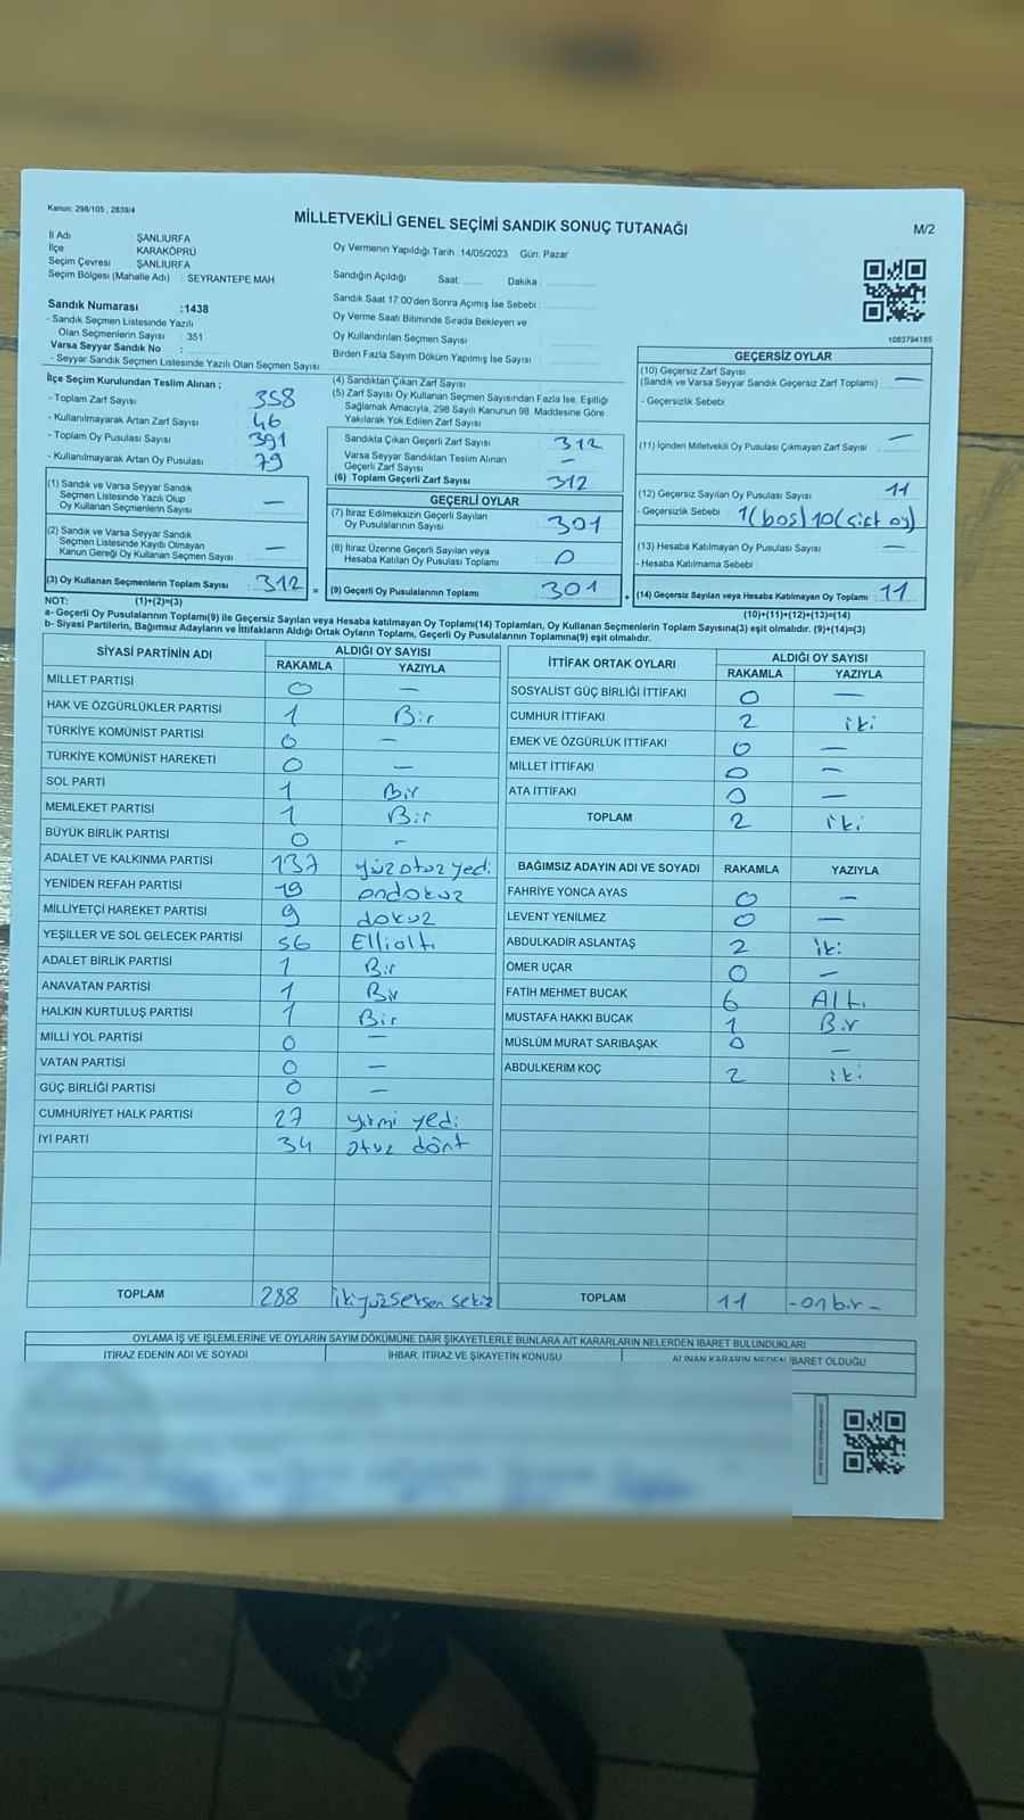 Kanun: 298/105 , 2839/4
MİLLETVEKİLİ GENEL SEÇİMİ SANDIK SONUÇ TUTANAĞI
M/2
İl Adı ŞANLIURFA
İlçe KARAKÖPRÜ
Seçim Çevresi ŞANLIURFA
Seçim Bölgesi (Mahalle Adı) : SEYRANTEPE MAH
Oy Vermenin Yapıldığı Tarih :14/05/2023 Gün: Pazar
Sandığın Açıldığı Saat: Dakika
Sandık Saat 17:00'den Sonra Açılmış İse Sebebi
Oy Verme Saati Bitiminde Sırada Bekleyen ve
Oy Kullandırılan Seçmen Sayısı
Birden Fazla Sayım Döküm Yapılmış İse Sayısı
Sandık Numarası :1438
- Sandık Seçmen Listesinde Yazılı
Olan Seçmenlerin Sayısı : 351
Varsa Seyyar Sandık No :
- Seyyar Sandık Seçmen Listesinde Yazılı Olan Seçmen Sayısı
1083794185
İlçe Seçim Kurulundan Teslim Alınan ;
- Toplam Zarf Sayısı 358
- Kullanılmayarak Artan Zarf Sayısı 46
- Toplam Oy Pusulası Sayısı 391
- Kullanılmayarak Artan Oy Pusulası 79
(1) Sandık ve Varsa Seyyar Sandık
Seçmen Listesinde Yazılı Olup
Oy Kullanan Seçmenlerin Sayısı —
(2) Sandık ve Varsa Seyyar Sandık
Seçmen Listesinde Kayıtlı Olmayan
Kanun Gereği Oy Kullanan Seçmen Sayısı —
(3) Oy Kullanan Seçmenlerin Toplam Sayısı 312 =
(1)+(2)=(3)
(4) Sandıktan Çıkan Zarf Sayısı
(5) Zarf Sayısı Oy Kullanan Seçmen Sayısından Fazla İse, Eşitliği
Sağlamak Amacıyla, 298 Sayılı Kanunun 98. Maddesine Göre
Yakılarak Yok Edilen Zarf Sayısı
Sandıkta Çıkan Geçerli Zarf Sayısı 312
Varsa Seyyar Sandıktan Teslim Alınan
Geçerli Zarf Sayısı —
(6) Toplam Geçerli Zarf Sayısı 312
GEÇERLİ OYLAR
(7) İtiraz Edilmeksizin Geçerli Sayılan
Oy Pusulalarının Sayısı 301
(8) İtiraz Üzerine Geçerli Sayılan veya
Hesaba Katılan Oy Pusulası Toplamı 0
(9) Geçerli Oy Pusulalarının Toplamı 301 +
GEÇERSİZ OYLAR
(10) Geçersiz Zarf Sayısı
(Sandık ve Varsa Seyyar Sandık Geçersiz Zarf Toplamı) —
- Geçersizlik Sebebi
(11) İçinden Milletvekili Oy Pusulası Çıkmayan Zarf Sayısı —
(12) Geçersiz Sayılan Oy Pusulası Sayısı 11
- Geçersizlik Sebebi 1(boş) 10(çift oy)
(13) Hesaba Katılmayan Oy Pusulası Sayısı —
- Hesaba Katılmama Sebebi
(14) Geçersiz Sayılan veya Hesaba Katılmayan Oy Toplamı 11
(10)+(11)+(12)+(13)=(14)
NOT:
a- Geçerli Oy Pusulalarının Toplamı(9) ile Geçersiz Sayılan veya Hesaba katılmayan Oy Toplamı(14) Toplamları, Oy Kullanan Seçmenlerin Toplam Sayısına(3) eşit olmalıdır. (9)+(14)=(3)
b- Siyasi Partilerin, Bağımsız Adayların ve İttifakların Aldığı Ortak Oyların Toplamı, Geçerli Oy Pusulalarının Toplamına(9) eşit olmalıdır.
SİYASİ PARTİNİN ADI ALDIĞI OY SAYISI
RAKAMLA YAZIYLA
MİLLET PARTİSİ 0 —
HAK VE ÖZGÜRLÜKLER PARTİSİ 1 Bir
TÜRKİYE KOMÜNİST PARTİSİ 0 —
TÜRKİYE KOMÜNİST HAREKETİ 0 —
SOL PARTİ 1 Bir
MEMLEKET PARTİSİ 1 Bir
BÜYÜK BİRLİK PARTİSİ 0 -
ADALET VE KALKINMA PARTİSİ 137 yüzotuzyedi
YENİDEN REFAH PARTİSİ 19 ondokuz
MİLLİYETÇİ HAREKET PARTİSİ 9 dokuz
YEŞİLLER VE SOL GELECEK PARTİSİ 56 Ellialtı
ADALET BİRLİK PARTİSİ 1 Bir
ANAVATAN PARTİSİ 1 Bir
HALKIN KURTULUŞ PARTİSİ 1 Bir
MİLLİ YOL PARTİSİ 0 —
VATAN PARTİSİ 0 —
GÜÇ BİRLİĞİ PARTİSİ 0 —
CUMHURİYET HALK PARTİSİ 27 yirmi yedi
İYİ PARTİ 34 otuz dört
TOPLAM 288 ikiyüzseksen sekiz
İTTİFAK ORTAK OYLARI ALDIĞI OY SAYISI
RAKAMLA YAZIYLA
SOSYALİST GÜÇ BİRLİĞİ İTTİFAKI 0 —
CUMHUR İTTİFAKI 2 iki
EMEK VE ÖZGÜRLÜK İTTİFAKI 0 —
MİLLET İTTİFAKI 0 —
ATA İTTİFAKI 0 —
TOPLAM 2 iki
BAĞIMSIZ ADAYIN ADI VE SOYADI RAKAMLA YAZIYLA
FAHRİYE YONCA AYAS 0 —
LEVENT YENİLMEZ 0 —
ABDULKADİR ASLANTAŞ 2 iki
ÖMER UÇAR 0 —
FATİH MEHMET BUCAK 6 Altı
MUSTAFA HAKKI BUCAK 1 Bir
MÜSLÜM MURAT SARIBAŞAK 0 —
ABDULKERİM KOÇ 2 iki
TOPLAM 11 -onbir-
OYLAMA İŞ VE İŞLEMLERİNE VE OYLARIN SAYIM DÖKÜMÜNE DAİR ŞİKAYETLERLE BUNLARA AİT KARARLARIN NELERDEN İBARET BULUNDUKLARI
İTİRAZ EDENİN ADI VE SOYADI İHBAR, İTİRAZ VE ŞİKAYETİN KONUSU ALINAN KARARIN NEDEN İBARET OLDUĞU